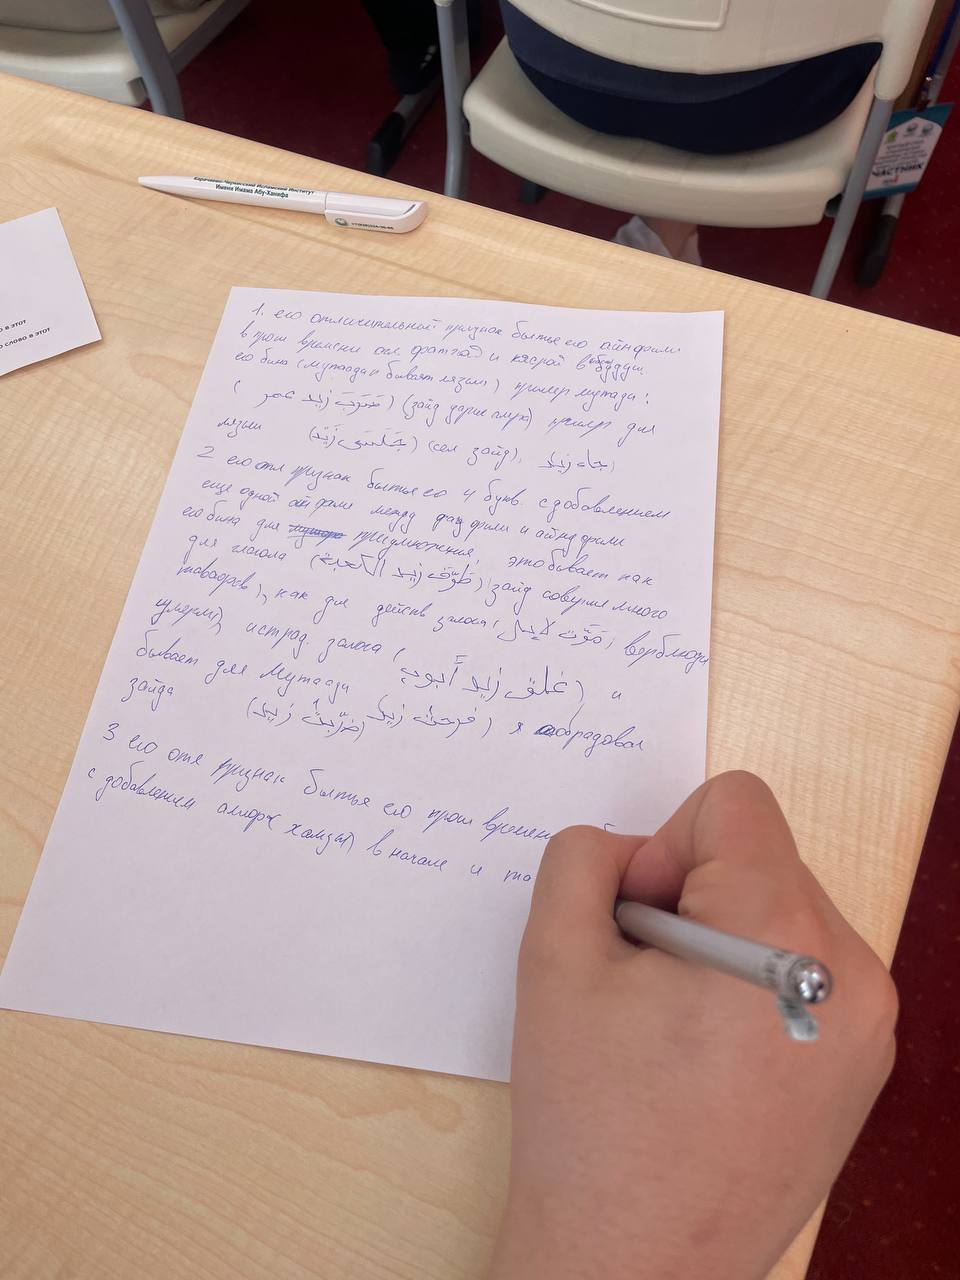 Карачаево-Черкесский Исламский Институт
Имени Имама Абу-Ханифа
УЧАСТНИК
О В ЭТОТ
О СЛОВО В ЭТОТ
1. его отличительной признак бытье его айн фили
в прош времени с фатхой и кясрой в будущ.
его бина (мутаади и бывает лязим) пример мутади:
( ضَرَبَ زيد عمر ) (зайд ударил амра) пример для
лязим (جَلَسَ زَيْدٌ) (сел зайд), جاء زيد)
2 его отл признак бытье его 4 букв. с добавлением
еще одной айн фили между фаъ фили и айну фили
его бина для приумножения, это бывает как
для глагола (طَوَّفَ زيد الكعبة) (зайд совершил много
тавафов), как для действ залога( مَوَّت لإبل) верблюды
умерли), и страд. залога (غلق زيد أبوب) и
бывает для Мутаади (فرحت زيد) я обрадовал
зайда (ضرّبت زيد)
3 его отл признак бытье его прош времени
с добавлением алифа( хамзы) в начале и